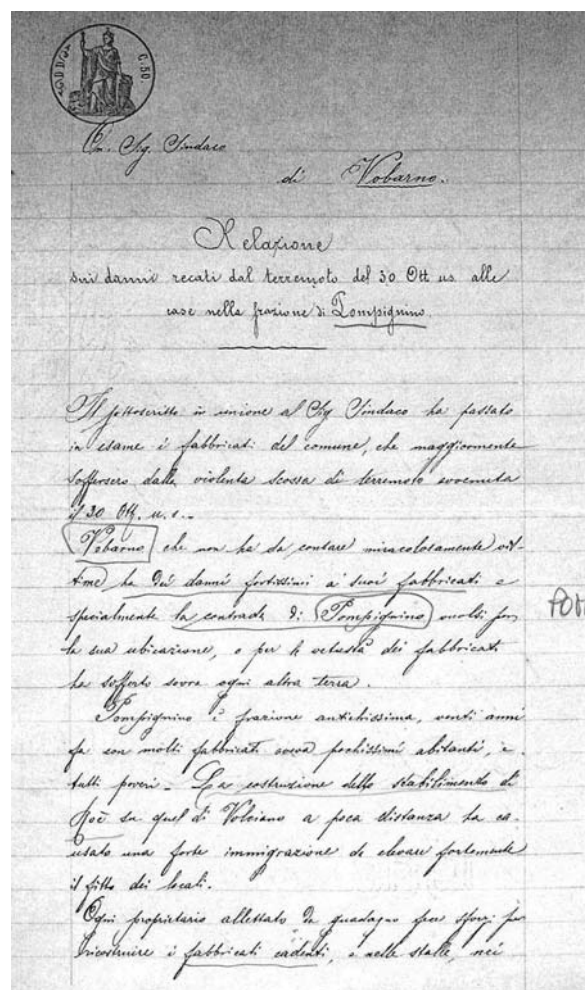 C. 50.
On. Sig. Sindaco
di Vobarno.
Relazione
sui danni recati dal terremoto del 30 Ott us. alle
case nella frazione di Pompignino
Il sottoscritto in unione al Sig Sindaco ha passato
in esame i fabbricati del comune, che maggiormente
soffersero dalla violenta scossa di terremoto avvenuta
il 30 Ott. u. s.
Vobarno che non ha da contare miracolosamente vit-
time ha dei danni fortissimi a' suoi fabbricati e
specialmente la contrada di Pompignino vuolsi per
la sua ubicazione, o per la vetustà dei fabbricati
ha sofferto sovra ogni altra terra.
Pompignino è frazione antichissima, venti anni
fa con molti fabbricati aveva pochissimi abitanti, e
tutti poveri - La costruzione dello stabilimento di
Roè su quel di Volciano a poca distanza ha ca-
usato una forte immigrazione da elevare fortemente
il fitto dei locali.
Ogni proprietario allettato da guadagno fece sforzi per
ricostruire i fabbricati cadenti, e nelle stalle, nei